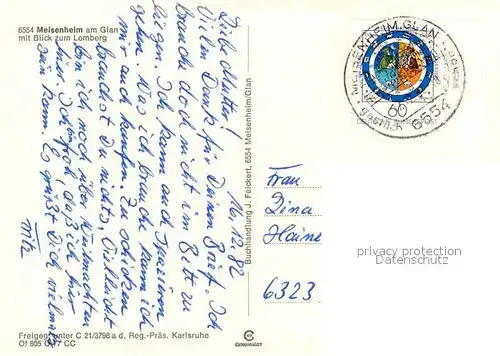 6554 Meisenheim am Glan
mit Blick zum Lemberg
16.12.82
Liebe Mutter!
Vielen Dank für Deinen Brief. Ich
brauche doch nicht im Bett zu
liegen. Ich kann auch spazieren
gehen. Was ich brauche kann ich
mir auch kaufen. Zu schicken
brauchst Du nichts. Vielleicht
bin ich noch über Weihnachten
hier. Ich bin froh, daß ich hier
sein kann. Es grüßt Dich vielmals
Fritz
Buchhandlung J. Feickert, 6554 Meisenheim/Glan
Freigeg. unter C 21/3798 a d. Reg.-Präs. Karlsruhe
MEISENHEIM, GLAN
60
6554
Frau
Dina
Haine
6323
privacy protection
watermark